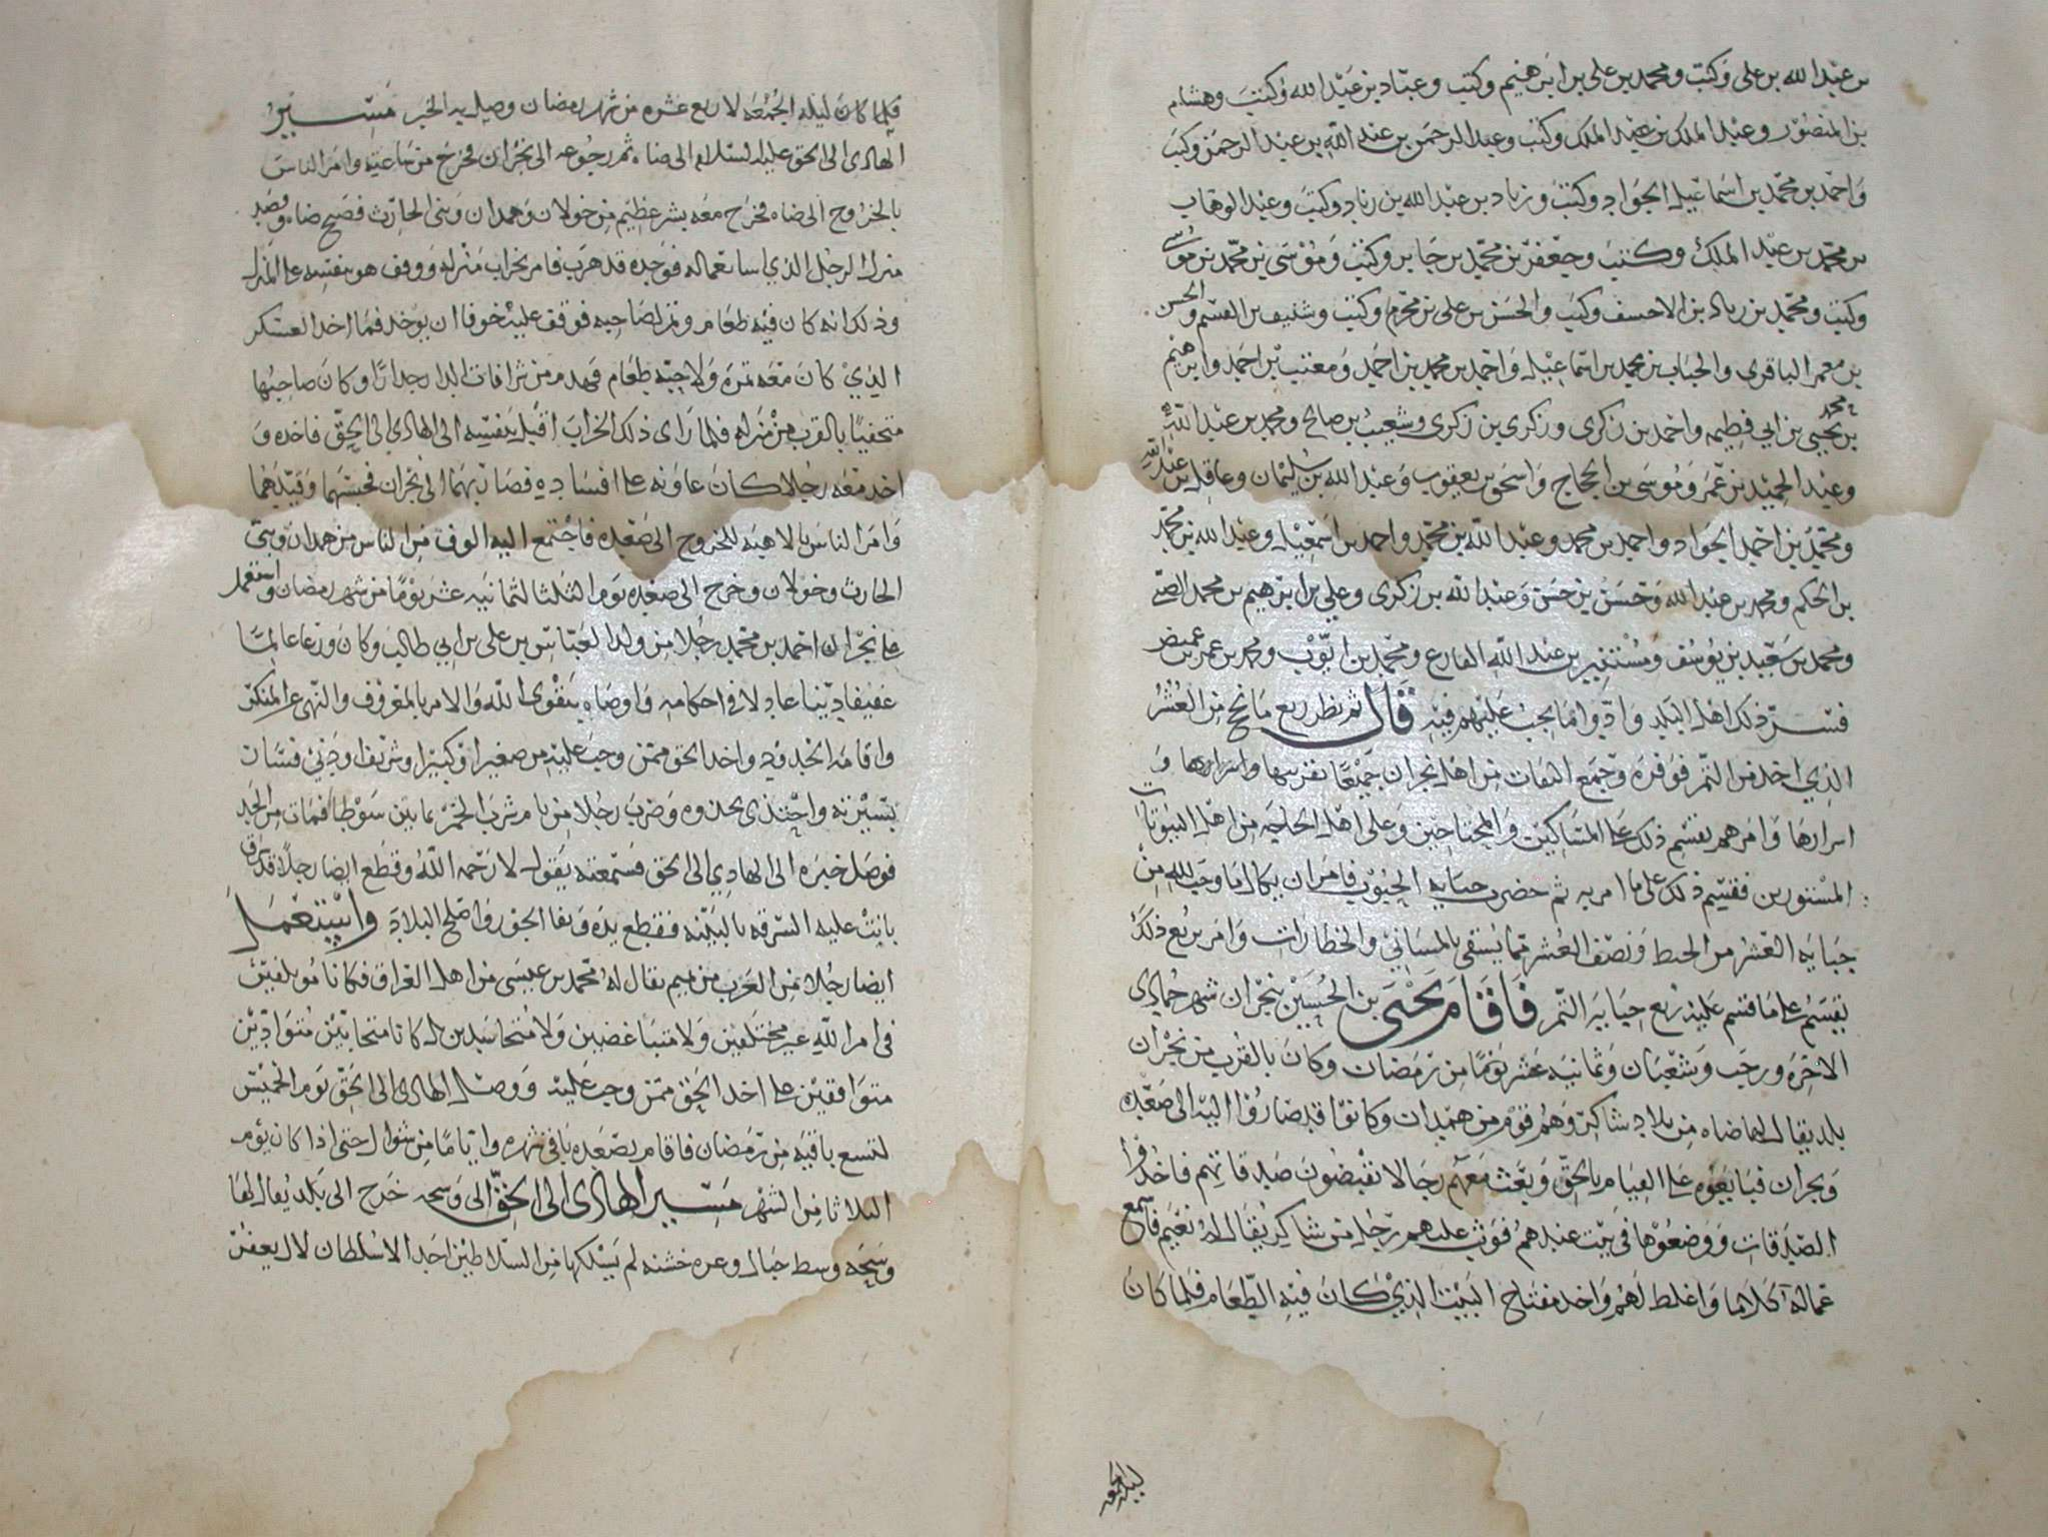 بن عبد الله بن على وكتب ومحمد بن على بن ابرهيم وكتب وعباد بن عبد الله وكتب وهشام
بن المنصور وعبد الملك بن عبد الملك وكتب وعبد الرحمن بن عبد الله بن عبد الرحمن وكتب
واحمد بن محمد بن اسماعيل الجواد وكتب وزياد بن عبد الله بن زياد وكتب وعبد الوهاب
بن محمد بن عبد الملك وكتب وجعفر بن محمد بن جابر وكتب وموسى بن محمد بن موسى
وكتب ومحمد بن زياد بن الاحسف وكتب والحسن بن على بن محرم وكتب وشنيف بن القسم والحسن
بن معمر الباقرى والحباب بن محمد بن اسماعيل واحمد بن محمد بن احمد ومعتب بن احمد وابرهيم
بن محمد بن يحيى بن ابي فطيمه واحمد بن زكرى وزكرى بن زكرى وشعيب بن صالح ومحمد بن عبد الله
وعبد الحميد بن عمر وموسى بن الحجاج واسحق بن يعقوب وعبد الله بن سليمان وعاقل بن عبد الله
ومحمد بن احمد الجواد واحمد بن محمد وعبد الله بن محمد واحمد بن اسمعيل وعبد الله بن محمد
بن الحكم ومحمد بن عبد الله وحسن بن حسن وعبد الله بن زكرى وعلي بن ابرهيم بن محمد
ومحمد بن سعيد بن يوسف ومستنير بن عبد الله الفارع ومحمد بن ايوب ومحمد بن عمر بن
فسر ذلك اهل البلد وادوا ما يجب عليهم فيه قال ثم نظر ربع ما نجح من العشر
الذي اخذ من التمر فوفره وجمع الثقات من اهل نجران جميعا بقريبها واسرارها و
اسرارها وامرهم بقسم ذلك على المساكين والمحتاجين وعلى اهل الحاجه من اهل البيوتات
المستورين فقسم ذلك على ما امر به ثم حضرت جبايه الحبوب فامر ان يكال ما وجب لله من
جبايه العشر من الحنط ونصف العشر مما يسقى بالمساني والخطارات وامر بربع ذلك
يقسم على ما قسم عليه ربع جبايه التمر فاقام يحيى بن الحسين بنجران شهر جمادى
الاخره ورجب وشعبان وثمانيه عشر يوما من رمضان وكان بالقرب من نجران
بلد يقال لها ضاه من بلاد شاكر وهم قوم من همدان وكانوا قد صاروا اليه الى صعده
ونجران فبايعوه على القيام بالحق وبعث معهم رجالا يقبضون صدقاتهم فاخذوا
الصدقات ووضعوها في بيت عندهم فوثب عليهم رجل من شاكر يقال له نعيم فاسمع
عماله كلاما واغلظ لهم واخذ مفتاح البيت الذي كان فيه الطعام فلما كان
فلما كان ليله الجمعه لاربع عشره من شهر رمضان وصل به الخبر مسير
الهادى الى الحق عليه السلام الى ضاه ثم رجوعه الى نجران فخرج من ساعته وامر الناس
بالخروج الى ضاه فخرج معه بشر عظيم من خولان وهمدان وبنى الحارث فصبح ضاه وقصد
منزل الرجل الذي اسا بعماله فوجده قد هرب فامر بخراب منزله ووقف هو بنفسه على المنزل
وذلك انه كان فيه طعام وتمر لصاحبه فوقف عليه خوفا ان يوخذ فما اخذ العسكر
الذي كان معه تمره ولا حبه طعام فهدم من شرافات الدار جدارا وكان صاحبها
متخفيا بالقرب من منزله فلما راى ذلك الخراب اقبل بنفسه الى الهادي الى الحق فاخذه و
اخذ معه رجلا كان عاونه على افساده فصار بهما الى نجران فحبسهما وقيدهما
وامر الناس بالاهبه للخروج الى صعده فاجتمع اليه الوف من الناس من همدان وبنى
الحارث وخولان وخرج الى صعده يوم الثلثا لثمانيه عشر يوما من شهر رمضان واستعمل
على نجران احمد بن محمد رجلا من ولد العباس بن على بن ابي طالب وكان ورعا عالما
عفيفا دينا عادلا في احكامه واوصاه بتقوى الله والامر بالمعروف والنهى عن المنكر
واقامه الحدود واخذ الحق ممن وجب عليه من صغير او كبير او شريف او دني فسار
بسيرته واحتذى بحذوه وضرب رجلا من يام شرب الخمر ثمانين سوطا فمات من الحد
فوصل خبره الى الهادي الى الحق فسمعته يقول لا رحمه الله وقطع ايضا رجلا قد سرق
بانت عليه السرقه بالبينه فقطع يده ونفا الجور واصلح البلاد واستعمل
ايضا رجلا من العرب من ميم يقال له محمد بن عيسى من اهل العراق فكانا مؤتلفين
في امر الله غير مختلفين ولا متباغضين ولا متحاسدين بل كانا متحابين متوادين
متوافقين على اخذ الحق ممن وجب عليه ووصل الهادى الى الحق يوم الخميس
لتسع باقيه من رمضان فاقام بصعده باقى شهره واياما من شوال حتى اذا كان يوم
الثلاثا من الشهر مسير الهادى الى الحق الى وسحه خرج الى بلد يقال لها
وسحه وسط جبال وعره خشنه لم يسلكها من السلاطين احد الا سلطان لال يعفر